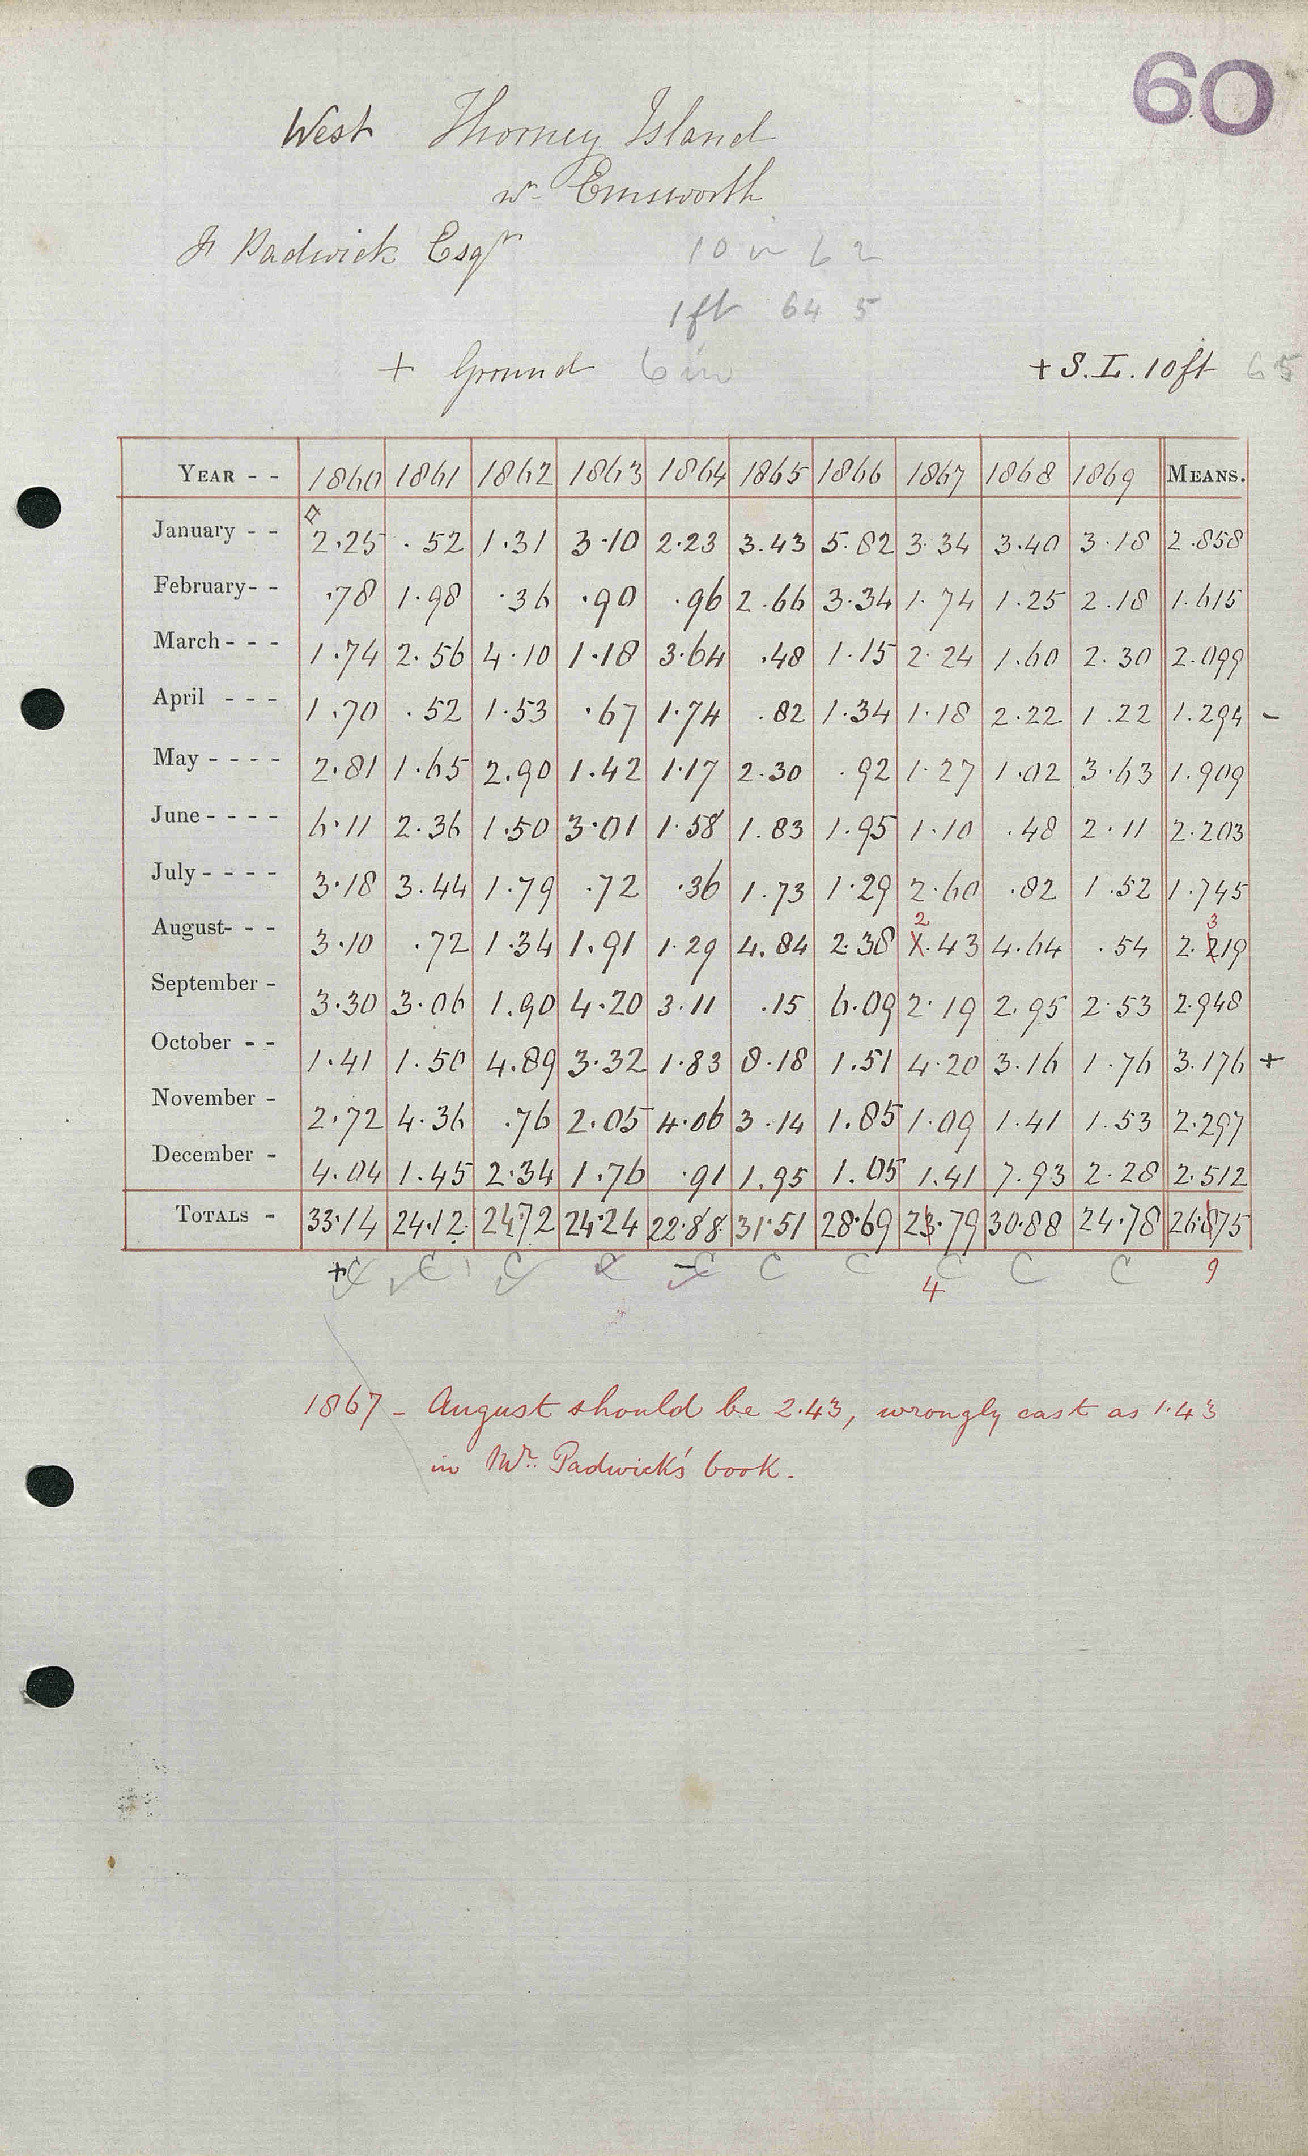 60
West Thorney Island
nr Emsworth
Padwick Esqr 10 in 62
1ft 64 5
+ Ground 6in +S.L. 10ft 65
YEAR - - 1860 1861 1862 1863 1864 1865 1866 1867 1868 1869 MEANS.
January - - 2.25 .52 1.31 3.10 2.23 3.43 5.82 3.34 3.40 3.18 2.858
February - - .78 1.98 .36 .90 .96 2.66 3.34 1.74 1.25 2.18 1.615
March - - - 1.74 2.56 4.10 1.18 3.64 .48 1.15 2.24 1.60 2.30 2.099
April - - - 1.70 .52 1.53 .67 1.74 .82 1.34 1.18 2.22 1.22 1.294 -
May - - - - 2.81 1.65 2.90 1.42 1.17 2.30 .92 1.27 1.02 3.63 1.909
June - - - - 6.11 2.36 1.50 3.01 1.58 1.83 1.95 1.10 .48 2.11 2.203
July - - - - 3.18 3.44 1.79 .72 .36 1.73 1.29 2.60 .82 1.52 1.745
2 3
August- - - 3.10 .72 1.34 1.91 1.29 4.84 2.38 1.43 4.64 .54 2.219
September - 3.30 3.06 1.90 4.20 3.11 .15 6.09 2.19 2.95 2.53 2.948
October - - 1.41 1.50 4.89 3.32 1.83 8.18 1.51 4.20 3.16 1.76 3.176 +
November - 2.72 4.36 .76 2.05 4.06 3.14 1.85 1.09 1.41 1.53 2.297
December - 4.04 1.45 2.34 1.76 .91 1.95 1.05 1.41 7.93 2.28 2.512
TOTALS - 33.14 24.12 24.72 24.24 22.88 31.51 28.69 23.79 30.88 24.78 26.875
+C C C C -C C C C C C 9
4
1867 - August should be 2.43, wrongly cast as 1.43
in Mr. Padwick's book.